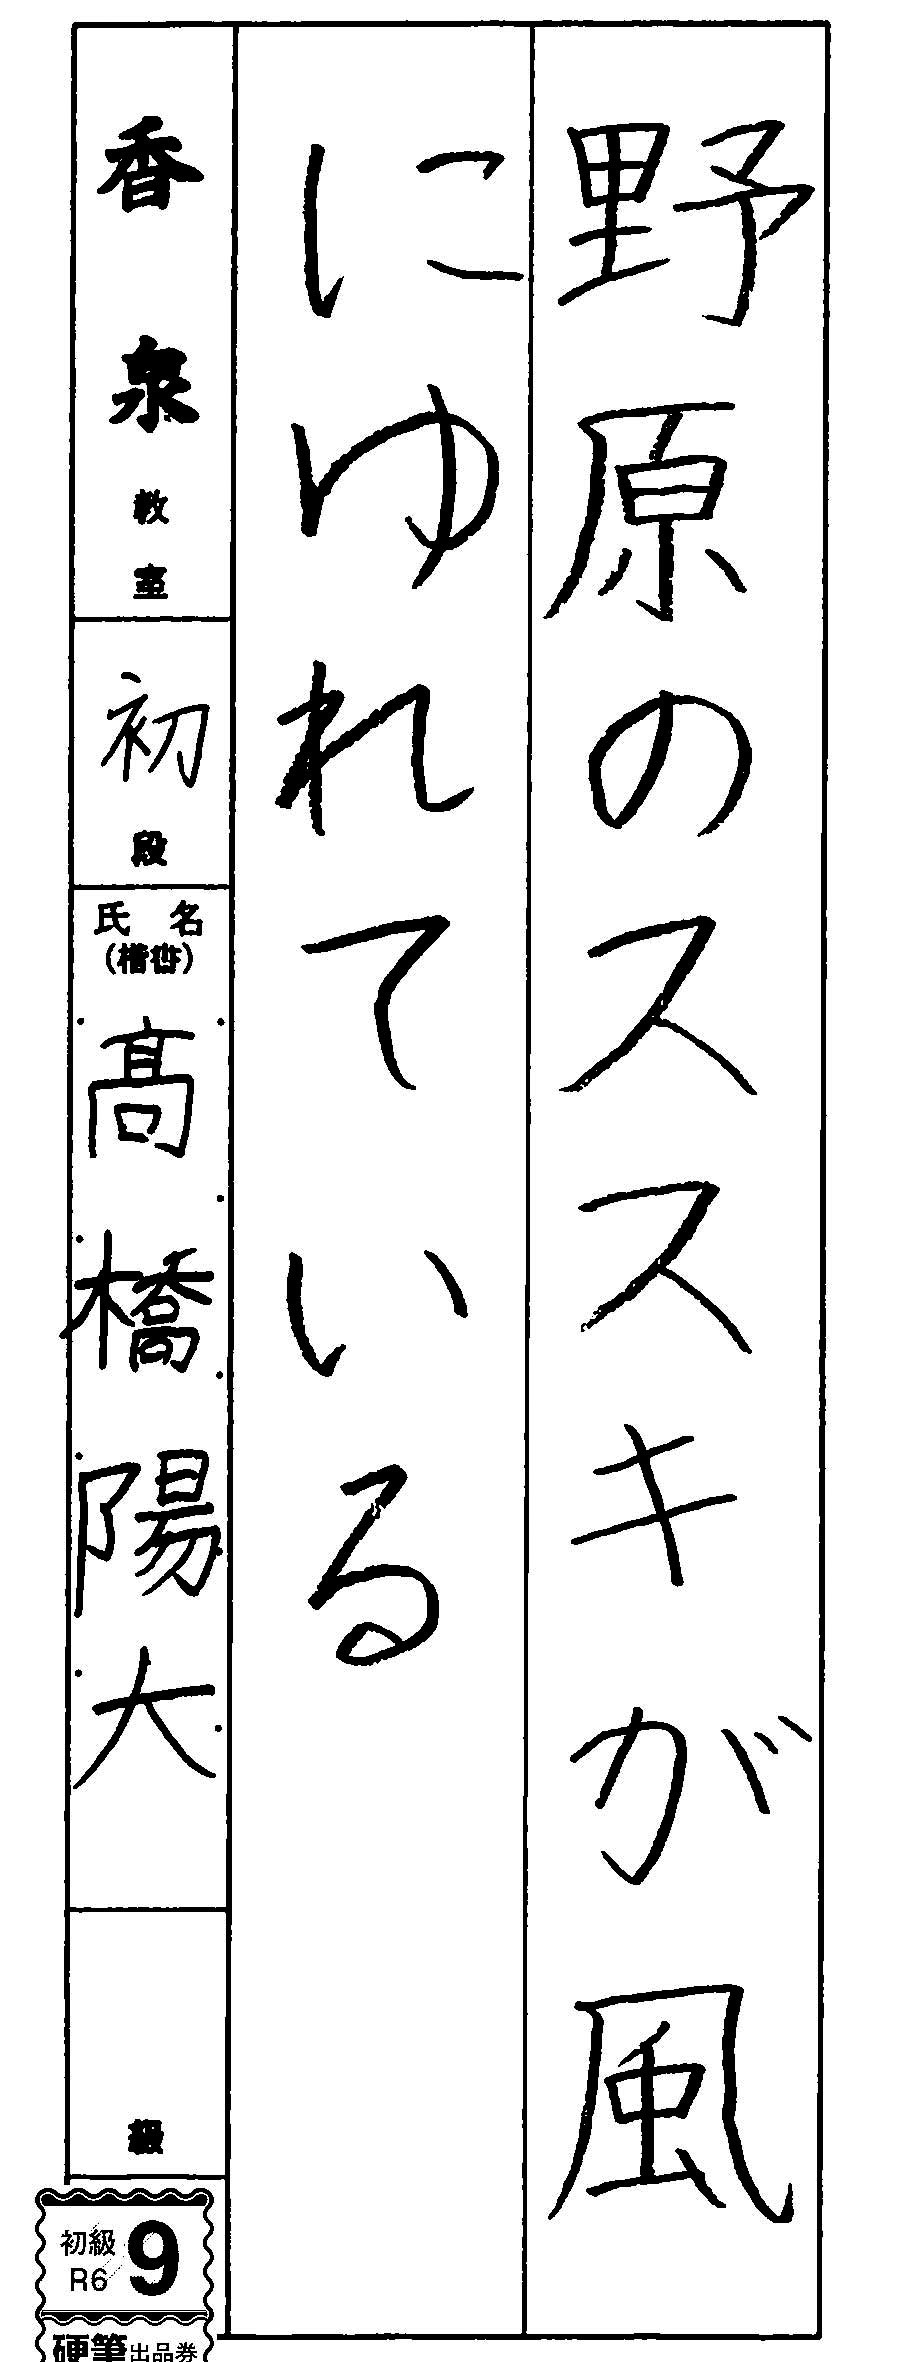 野原のススキが風
にゆれている
香泉教室
初段
氏名
(楷書)
髙橋陽大
級
初級
R6
9
硬筆出品券